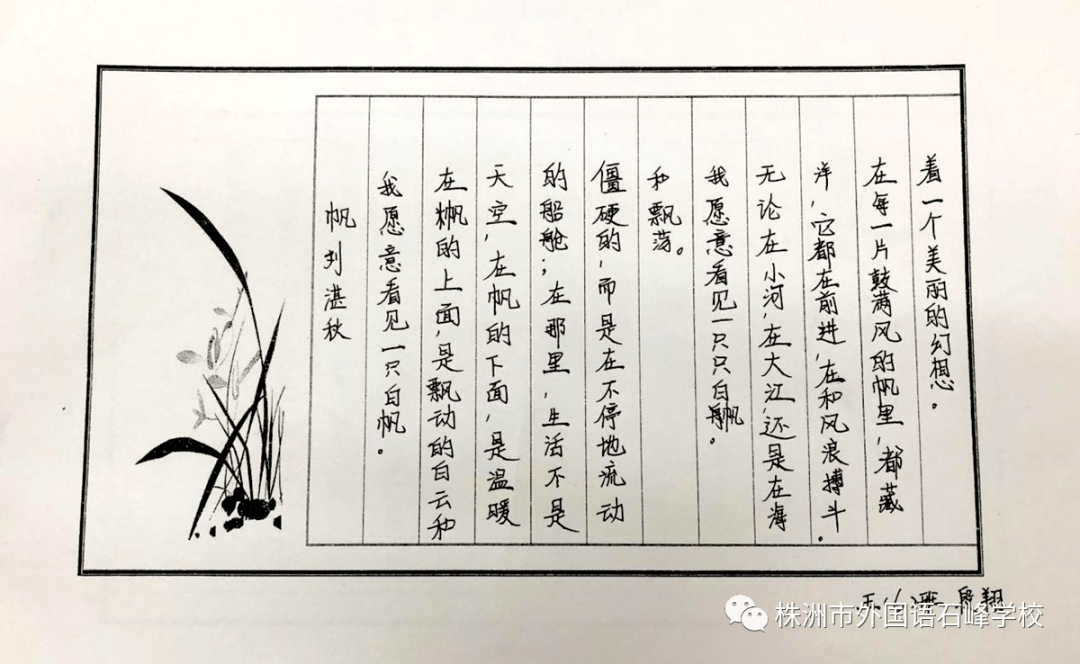 帆 刘湛秋
我愿意看见一只白帆。
在帆的上面,是飘动的白云和
天空,在帆的下面,是温暖
的船舱;在那里,生活不是
僵硬的,而是在不停地流动
和飘荡。
我愿意看见一只只白帆。
无论在小河,在大江,还是在海
洋,它都在前进,在和风浪搏斗。
在每一片鼓满风的帆里,都藏
着一个美丽的幻想。
班 翔
株洲市外国语石峰学校